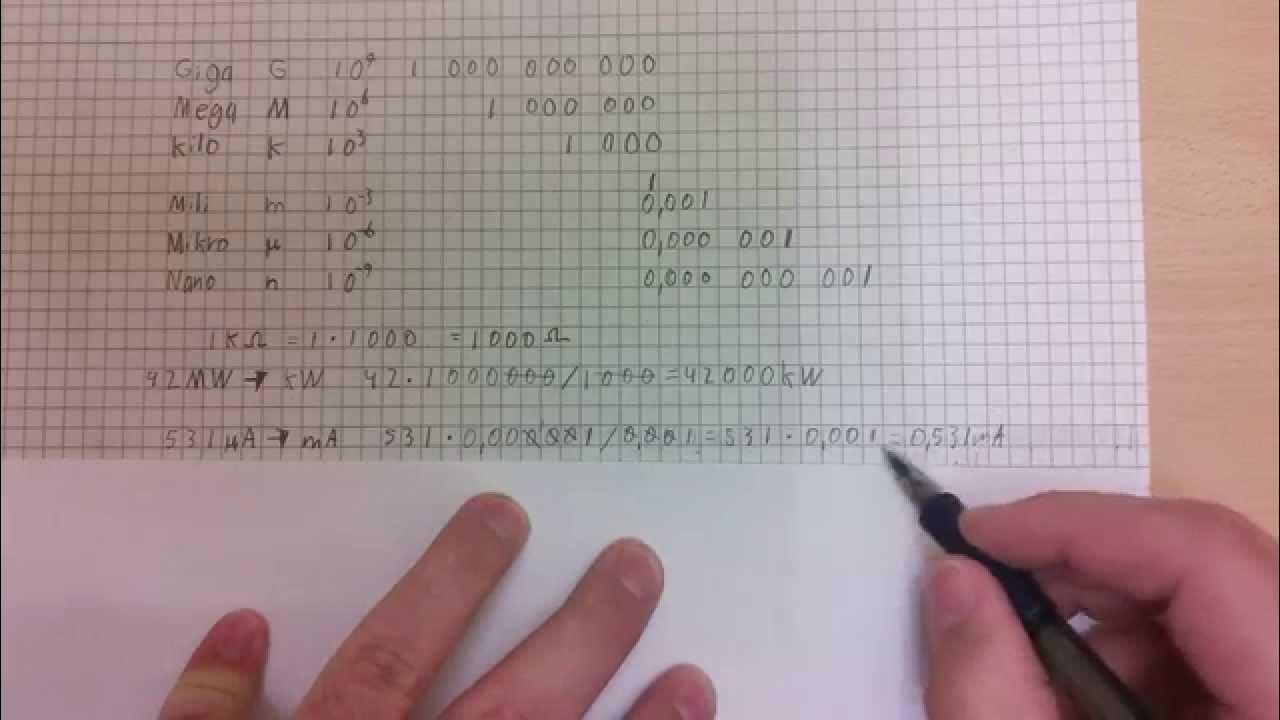 Giga G 10⁹ 1 000 000 000
Mega M 10⁶ 1 000 000
kilo k 10³ 1 000
1
Mili m 10⁻³ 0,001
Mikro µ 10⁻⁶ 0,000 001
Nano n 10⁻⁹ 0,000 000 001
1kΩ = 1·1000 = 1000Ω
42MW → kW 42·1000000/1000 = 42000kW
531µA → mA 531·0,000001/0,001 = 531·0,001 = 0,531mA